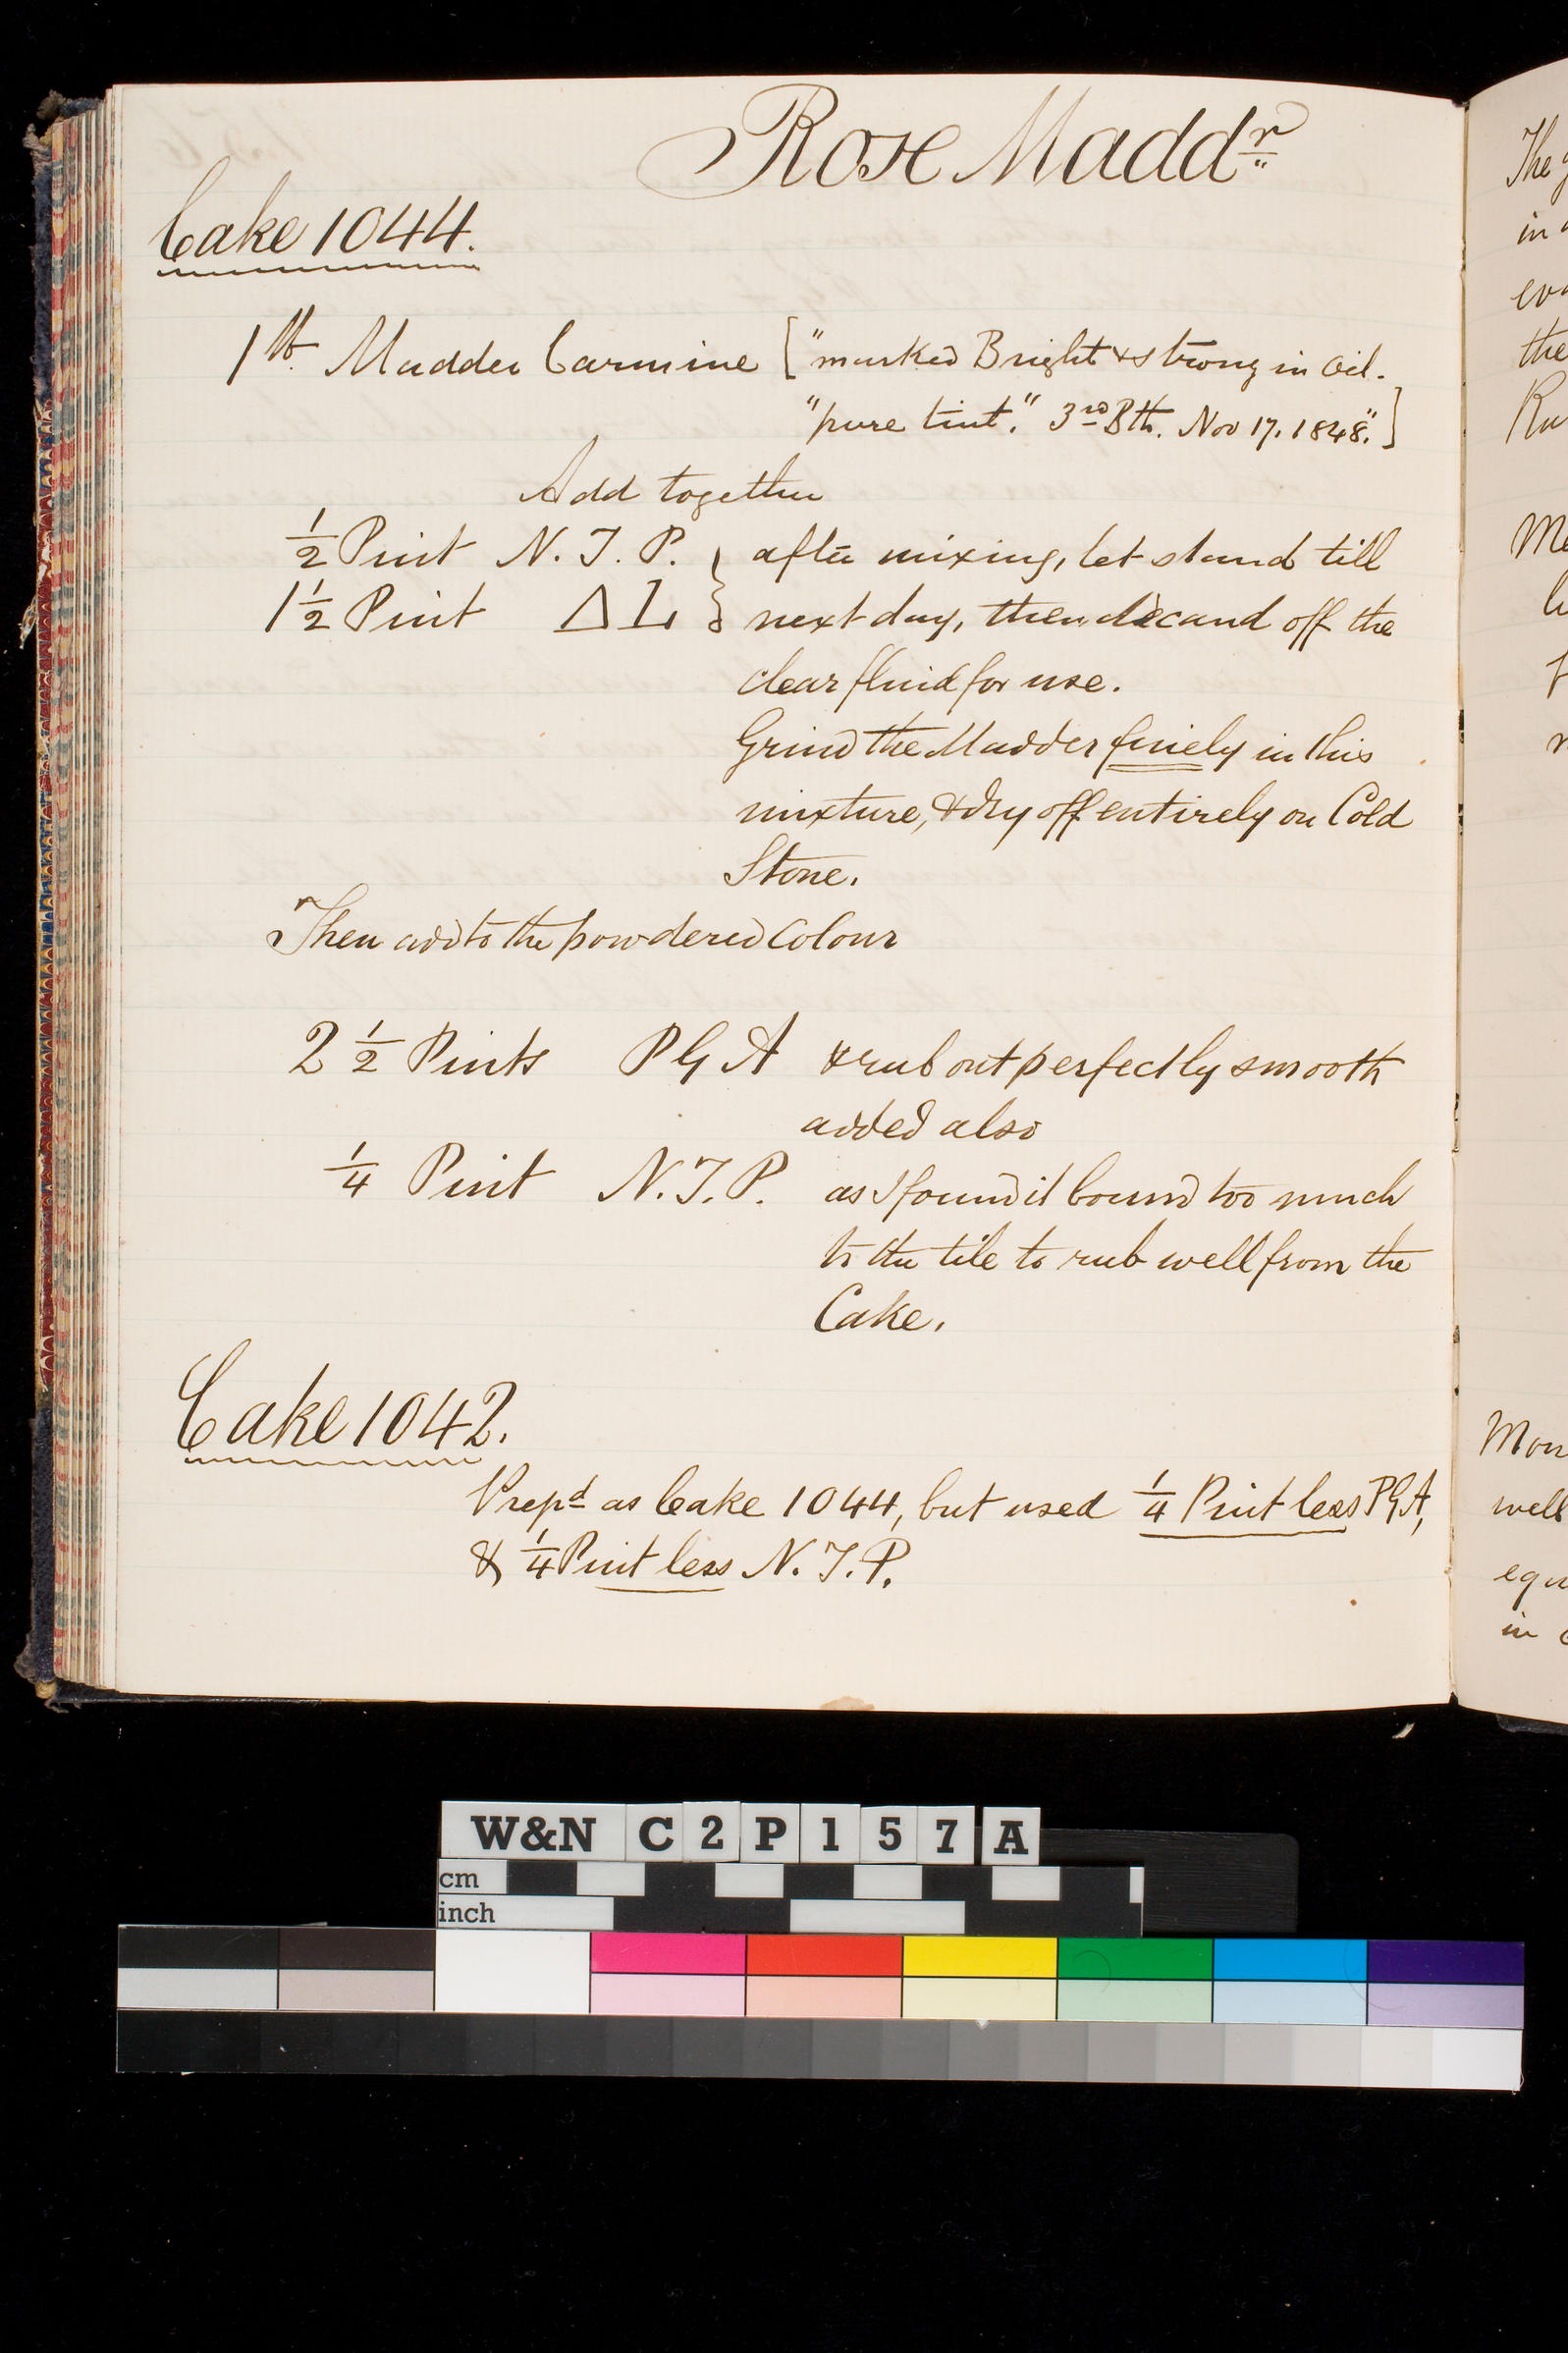 Rose Maddr
Cake 1044.
1 lb Madder Carmine ["marked Bright & strong in Oil.
"pure tint." 3rd Bth. Nov 17. 1848."]
Add together
1/2 Pint N. J. P. } after mixing, let stand till
1 1/2 Pint Δ L } next day, then decand off the
clear fluid for use.
Grind the Madder finely in this
mixture, & dry off entirely on Cold
Stone.
Then add to the powdered Colour
2 1/2 Pints P G A & rub out perfectly smooth
added also
1/4 Pint N. J. P. as I found it bound too much
to the tile to rub well from the
Cake.
Cake 1042.
Prepd as Cake 1044, but used 1/4 Pint less P G A,
& 1/4 Pint less N. J. P.
The
in
the
well
in
W&N C2P157A
cm
inch